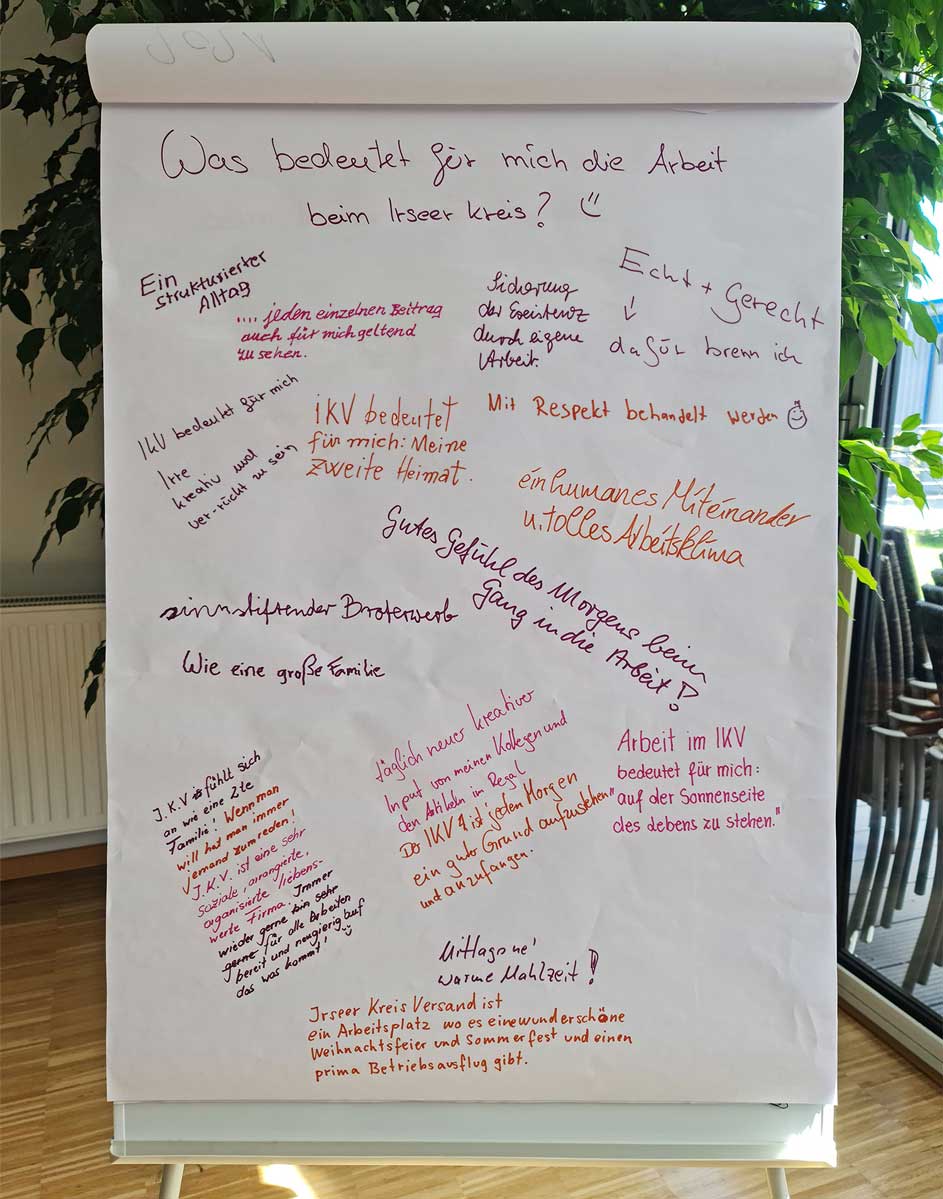 Was bedeutet für mich die Arbeit
beim Irseer Kreis?
Ein
strukturierter
Alltag
.... jeden einzelnen Beitrag
auch für mich geltend
zu sehen.
Sicherung
der Existenz
durch eigene
Arbeit.
Echt + Gerecht
dafür brenn ich
IKV bedeutet für mich
Irre
kreativ und
ver-rückt zu sein
IKV bedeutet
für mich: Meine
zweite Heimat.
Mit Respekt behandelt werden
ein humanes Miteinander
u. tolles Arbeitsklima
Gutes Gefühl des Morgens beim
Gang in die Arbeit!
sinnstiftender Broterwerb
Wie eine große Familie
I.K.V fühlt sich
an wie eine 2te
Familie! Wenn man
will hat man immer
jemand zum reden!
I.K.V. ist eine sehr
soziale, arrangierte,
organisierte liebens-
werte Firma. Immer
wieder gerne bin sehr
gerne für alle Arbeiten
bereit und neugierig auf
das was kommt!
täglich neuer kreativer
Input von meinen Kollegen und
den Artikeln im Regal
Der IKV ist jeden Morgen
ein guter Grund aufzustehen
und anzufangen.
Arbeit im IKV
bedeutet für mich:
"auf der Sonnenseite
des Lebens zu stehen."
Mittags ne'
warme Mahlzeit!
Irseer Kreis Versand ist
ein Arbeitsplatz wo es eine wunderschöne
Weihnachtsfeier und Sommerfest und einen
prima Betriebsausflug gibt.